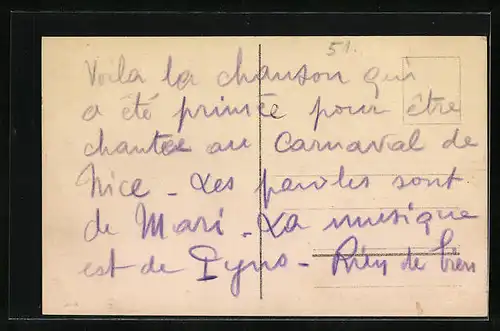 51.
Voila la chanson qui
a été primée pour être
chantee au Carnaval de
Nice - Les paroles sont
de Mari - La musique
est de - Rien de bien